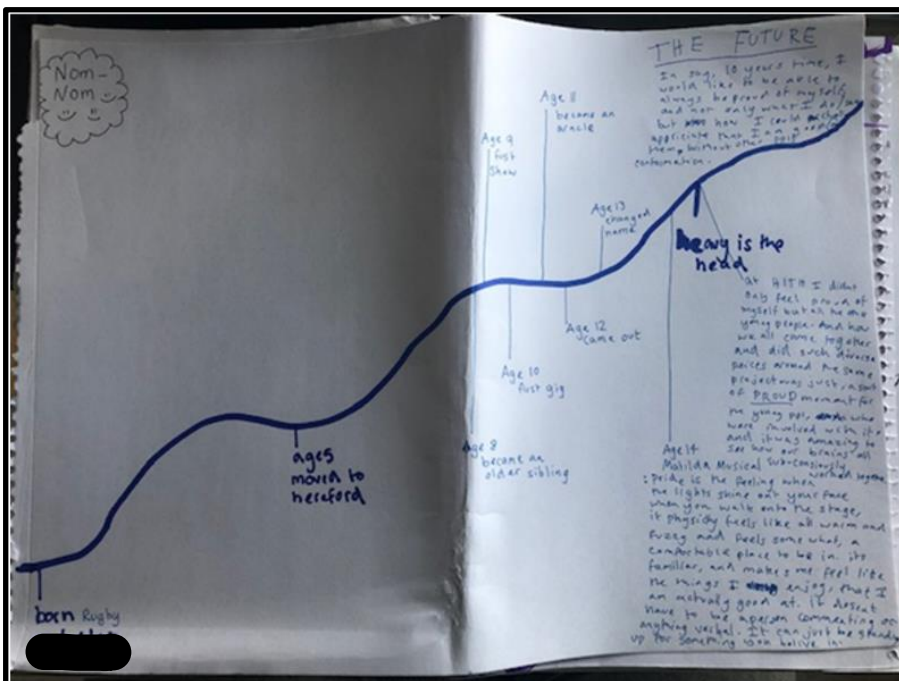 Nom-
Nom
THE FUTURE
In say, 10 years time, I
would like to be able to
always be proud of myself
and not only what I do/
but how I could
appriciate that I am good
them, without other
conformation.
Age 11
become an
Age 9
first
show
Age 13
changed
name
heavy is the
head
At HITH I didnt
only feel proud of
myself but all the
young people. And how
we all came together
and did such diverse
peices around the same
project was just a sort
of PROUD moment for
the young ppl, who
were involved with it,
and it was amazing to
see how our brains all
sub-consiously
worked together
Age 12
came out
Age 10
first gig
Age 8
become an
older sibling
Age 14
Matilda Musical
: Pride is the feeling when
the lights shine out your face
when you walk onto the stage,
it physicly feels like all warm and
fuzzy and feels some what, a
comfortable place to be in. its
familiar, and makes me feel like
the things I enjoy, that I
am actually good at. it doesnt
have to be a person commenting or
anything verbal. It can just be standing
up for something you belive in.
age 5
moved to
hereford
born Rugby